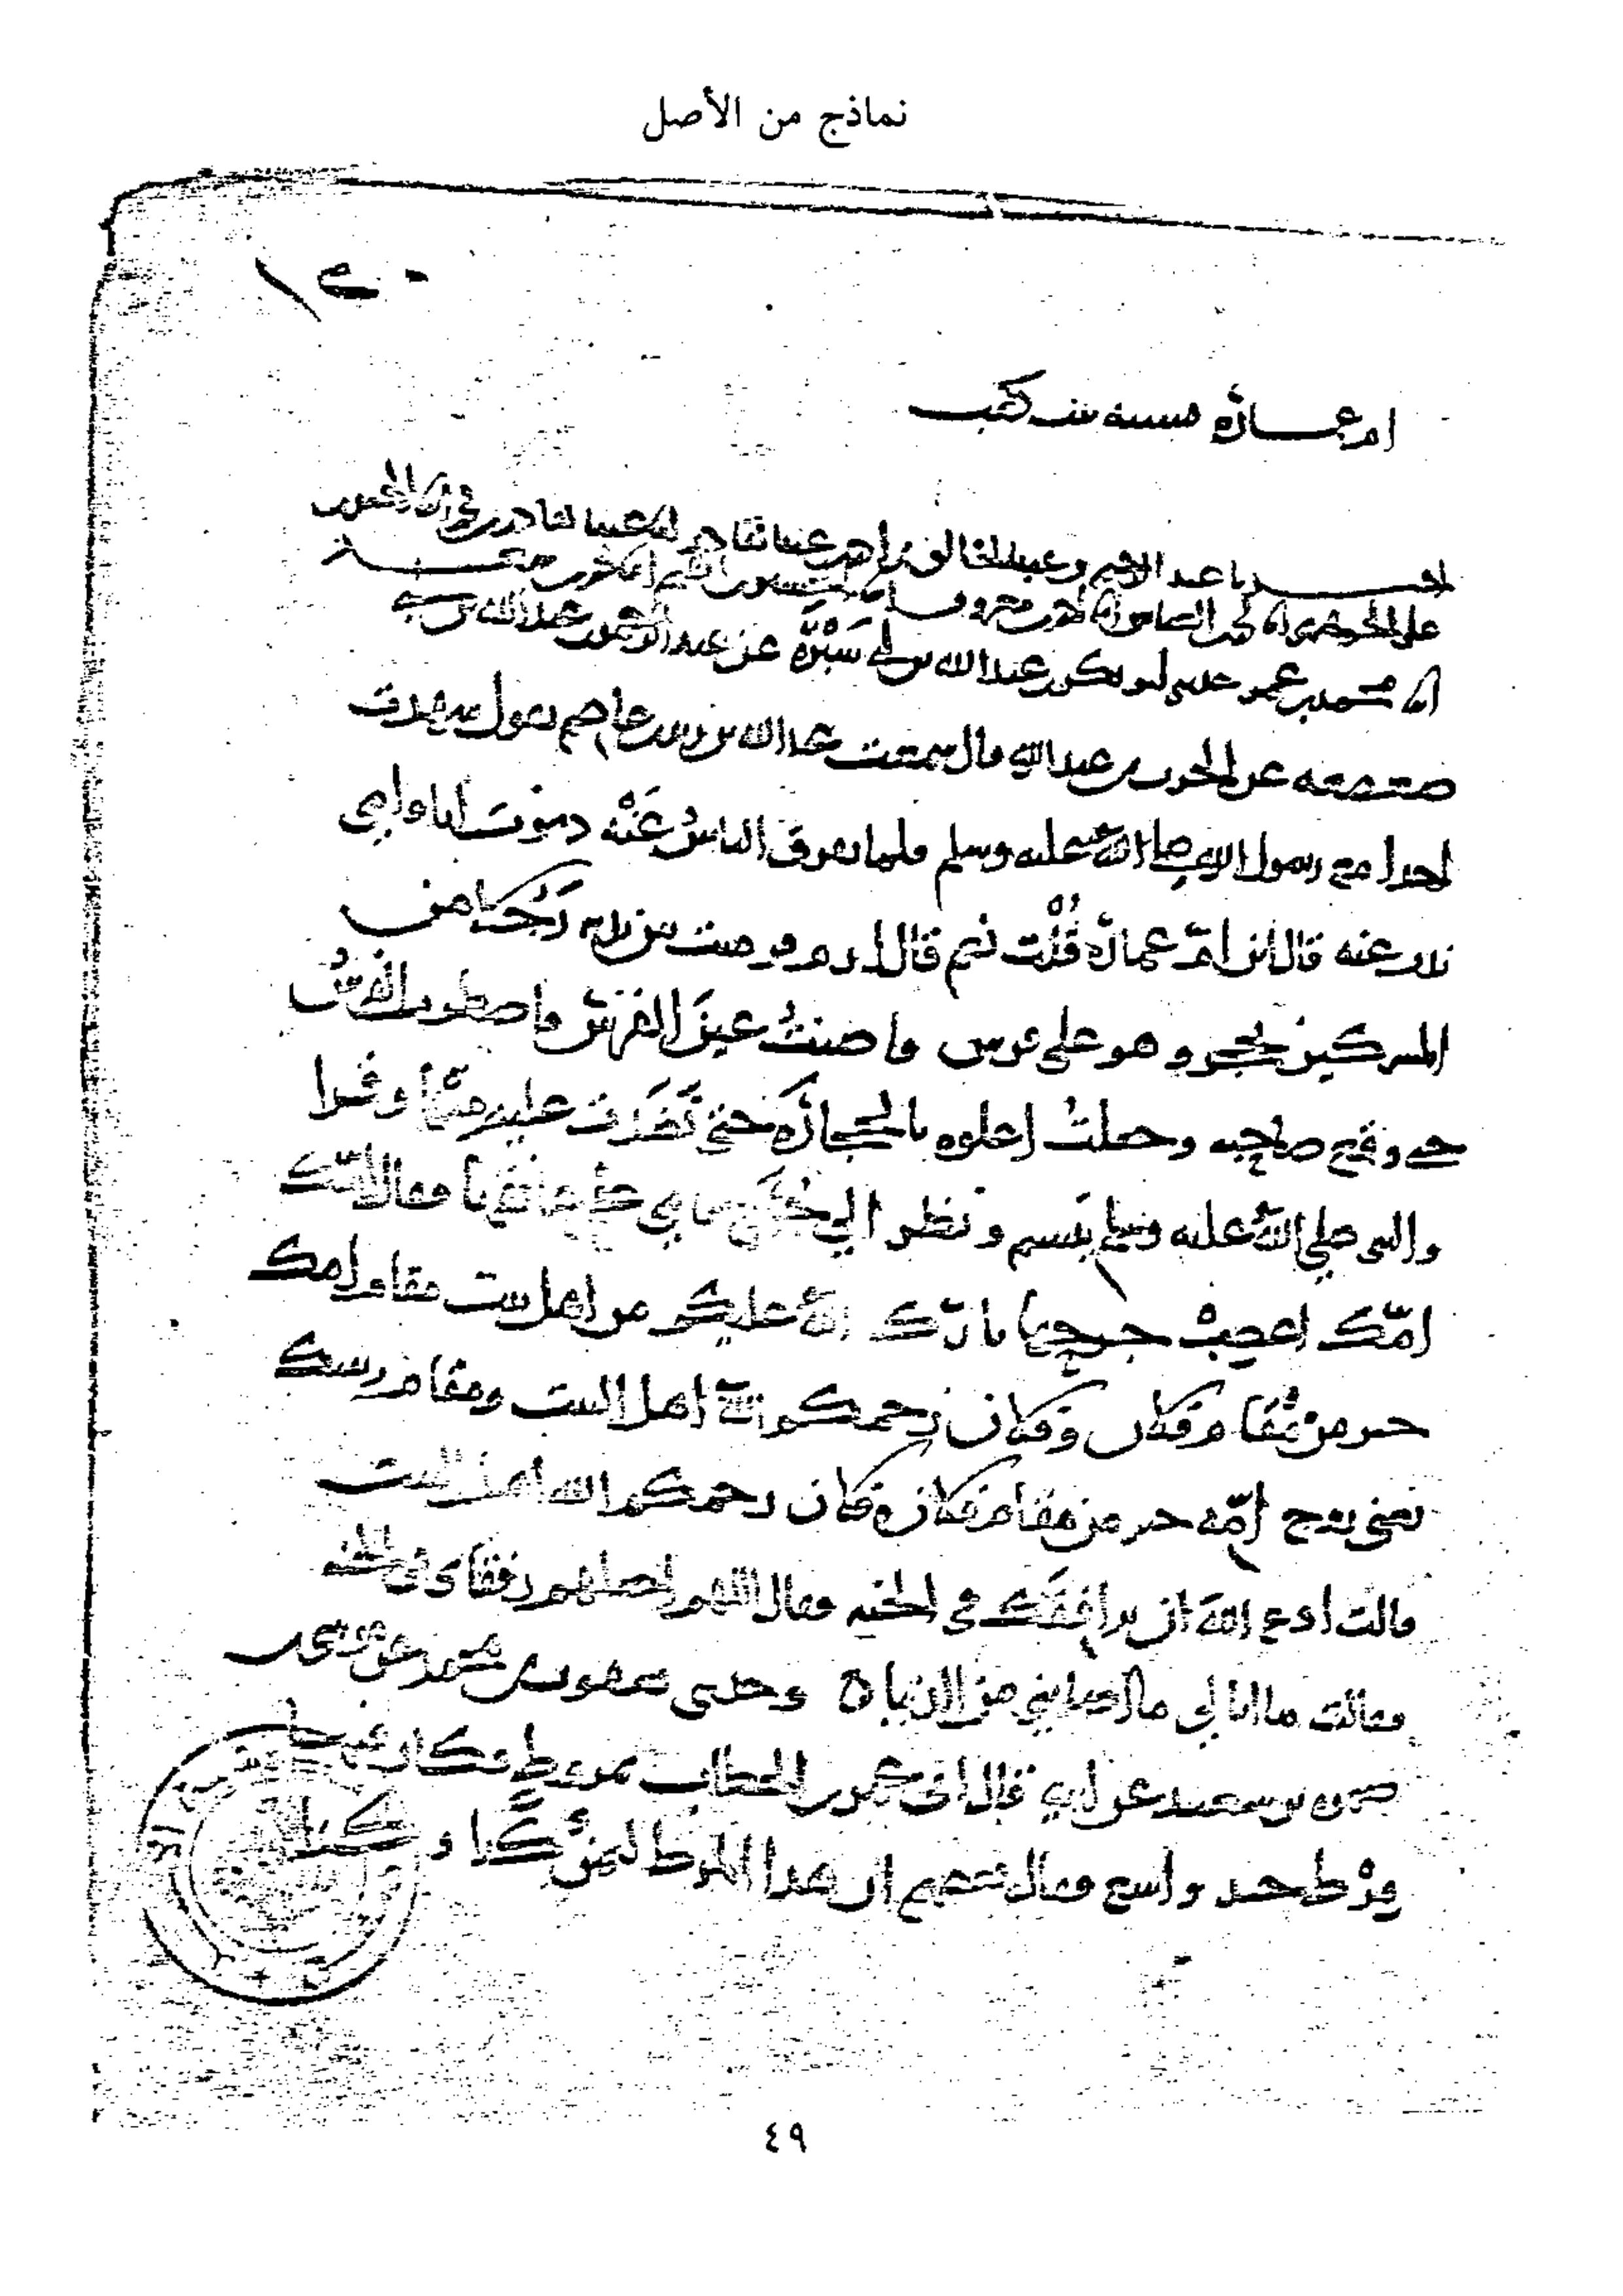 نماذج من الأصل
ام عمارة نسيبة بنت كعب
عبد الرحيم وعبد الخالق
محمد بن عمر حدثني ابو بكر بن عبد الله بن ابي سَبْرَة عن عبد الرحمن بن عبد الله بن ابي
صعصعه عن الحرث بن عبد الله قال سمعت عبد الله بن زيد بن عاصم يقول شهدت
احدا مع رسول الله صلى الله عليه وسلم فلما تفرق الناس عَنْه دنوت انا وامي
نذب عنه قال ابن امّ عمارة قُلْت نعم قال ارم فرميت بين يديه رَجُلا من
المشركين بحجر وهو على فرس فاصبتُ عينَ الفرس فاضطرب الفرسُ
حتى وقع صاحبه وجعلت اعلوه بالحجارَة حتى نَضَدت عليه منها وقرا
والنبي صلى الله عليه وسلم يتبسم ونظر الي جرح بامي على عاتقها فقال امّك
امّك اعصبْ جرحها بارك الله عليكم من اهل بيت مقام امك
خير من مُقام فلان وفلان رحمكم الله اهل البيت ومقام ربيبك
يعني زوج امّه خير من مقام فلان وفلان رحمكم الله اهل البيت
قالت ادع الله ان نرافقَك في الجنه فقال اللهم اجعلهم رفقاى في الجنه
فقالت ما ابالي ما اصابني من الدنيا ه وحدثني يعقوب بن محمد عن موسى بن
ضمره بن سعيد عن ابيه قال اتى عمر بن الخطاب بمروطٍ فكان فيها
مِرْط جيد واسع فقال بعضهم ان هذا المرط لثمن كَذا وكذا
٤٩